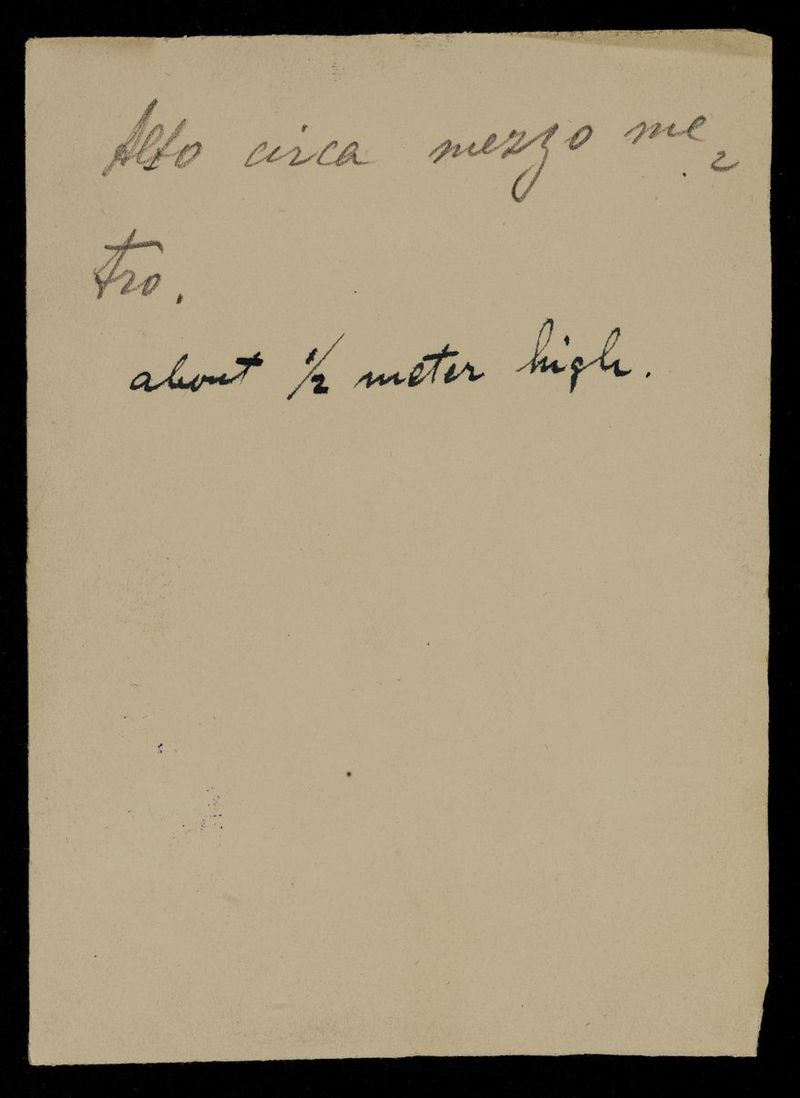 Alto circa mezzo me=
tro.
about 1/2 meter high.